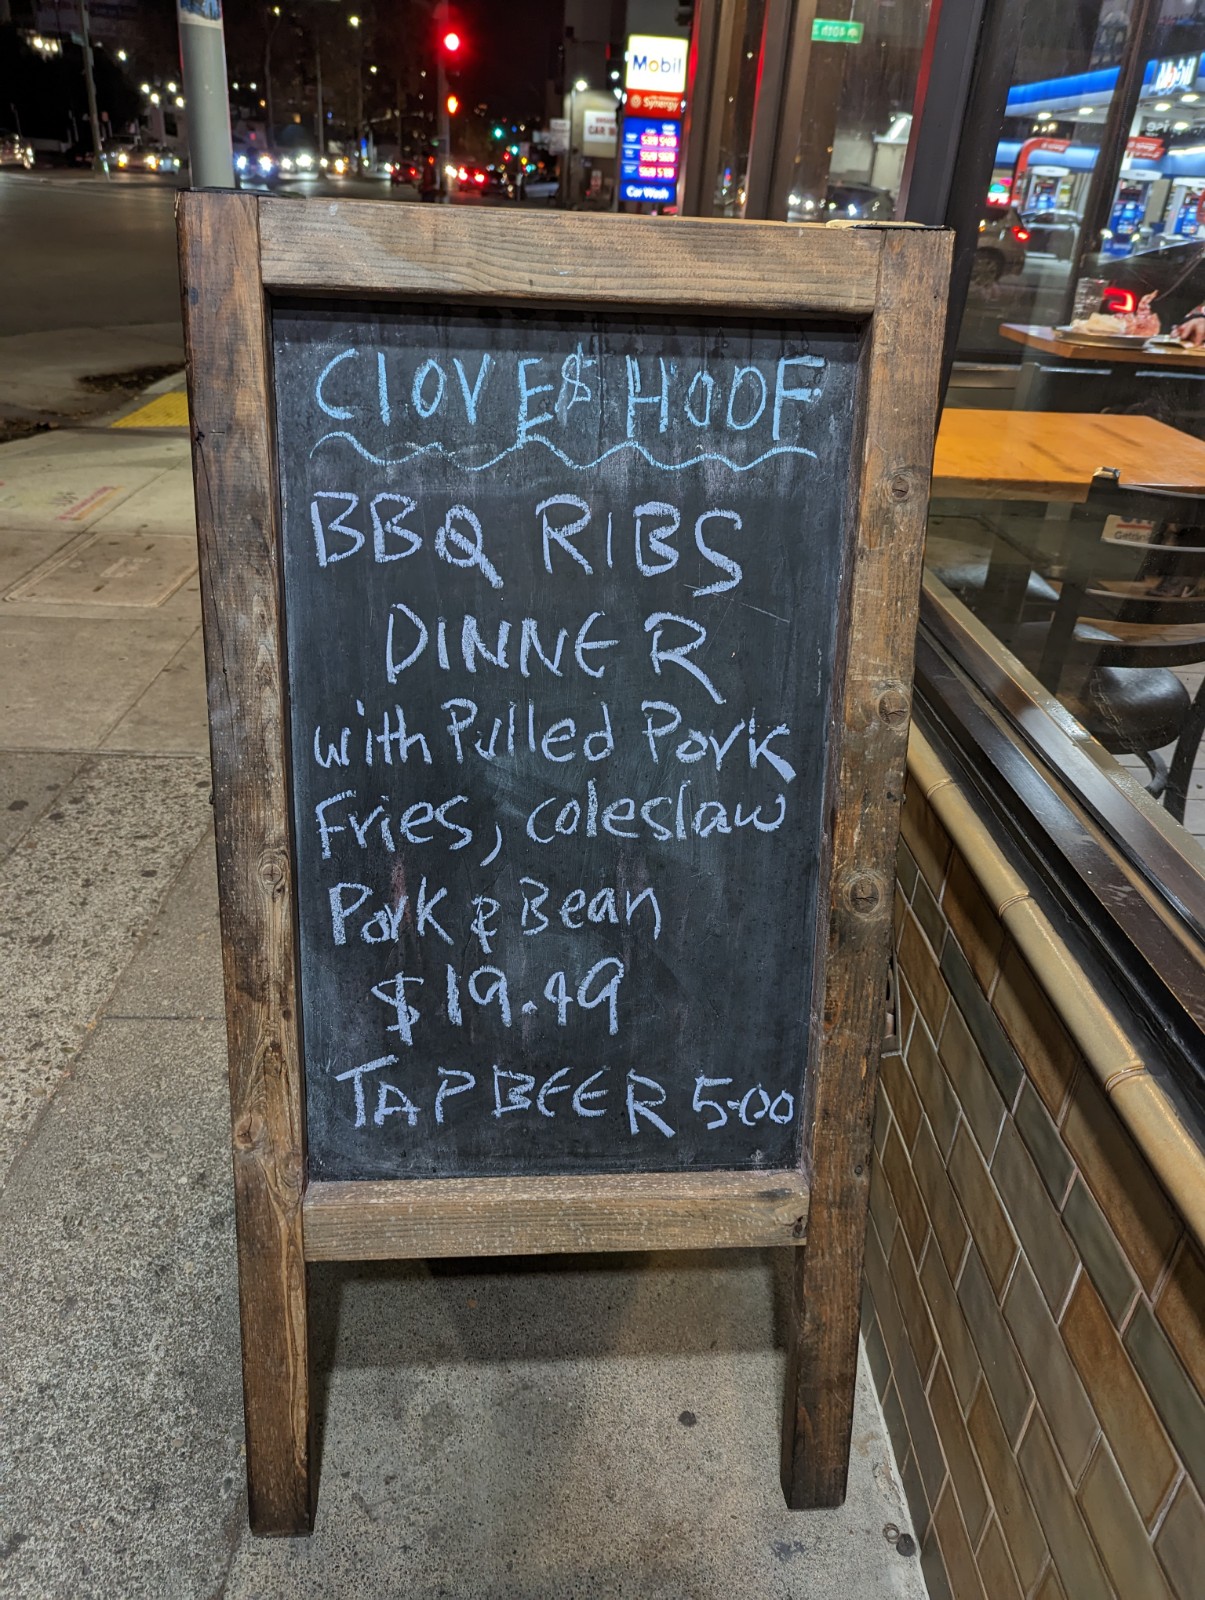 CLOVE & HOOF
BBQ RIBS
DINNER
with Pulled Pork
Fries, coleslaw
Pork & Bean
$19.49
TAP BEER 5.00
Mobil
Synergy
Car Wash
CAR
Mobil